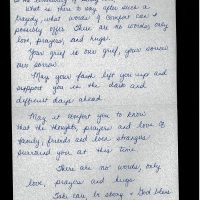 What is there to say after such a
tragedy what words of comfort can I
possibly offer. There are no words only
love, prayers, and hugs.
Your grief is our grief, your sorrow
our sorrow.
May your faith lift you up and
support you in the dark and
difficult days ahead.
May it comfort you to know
that the thoughts, prayers and love of
family, friends and love strangers
surround you at this time.
There are no words, only
love, prayers and hugs.
Take care be strong + God bless